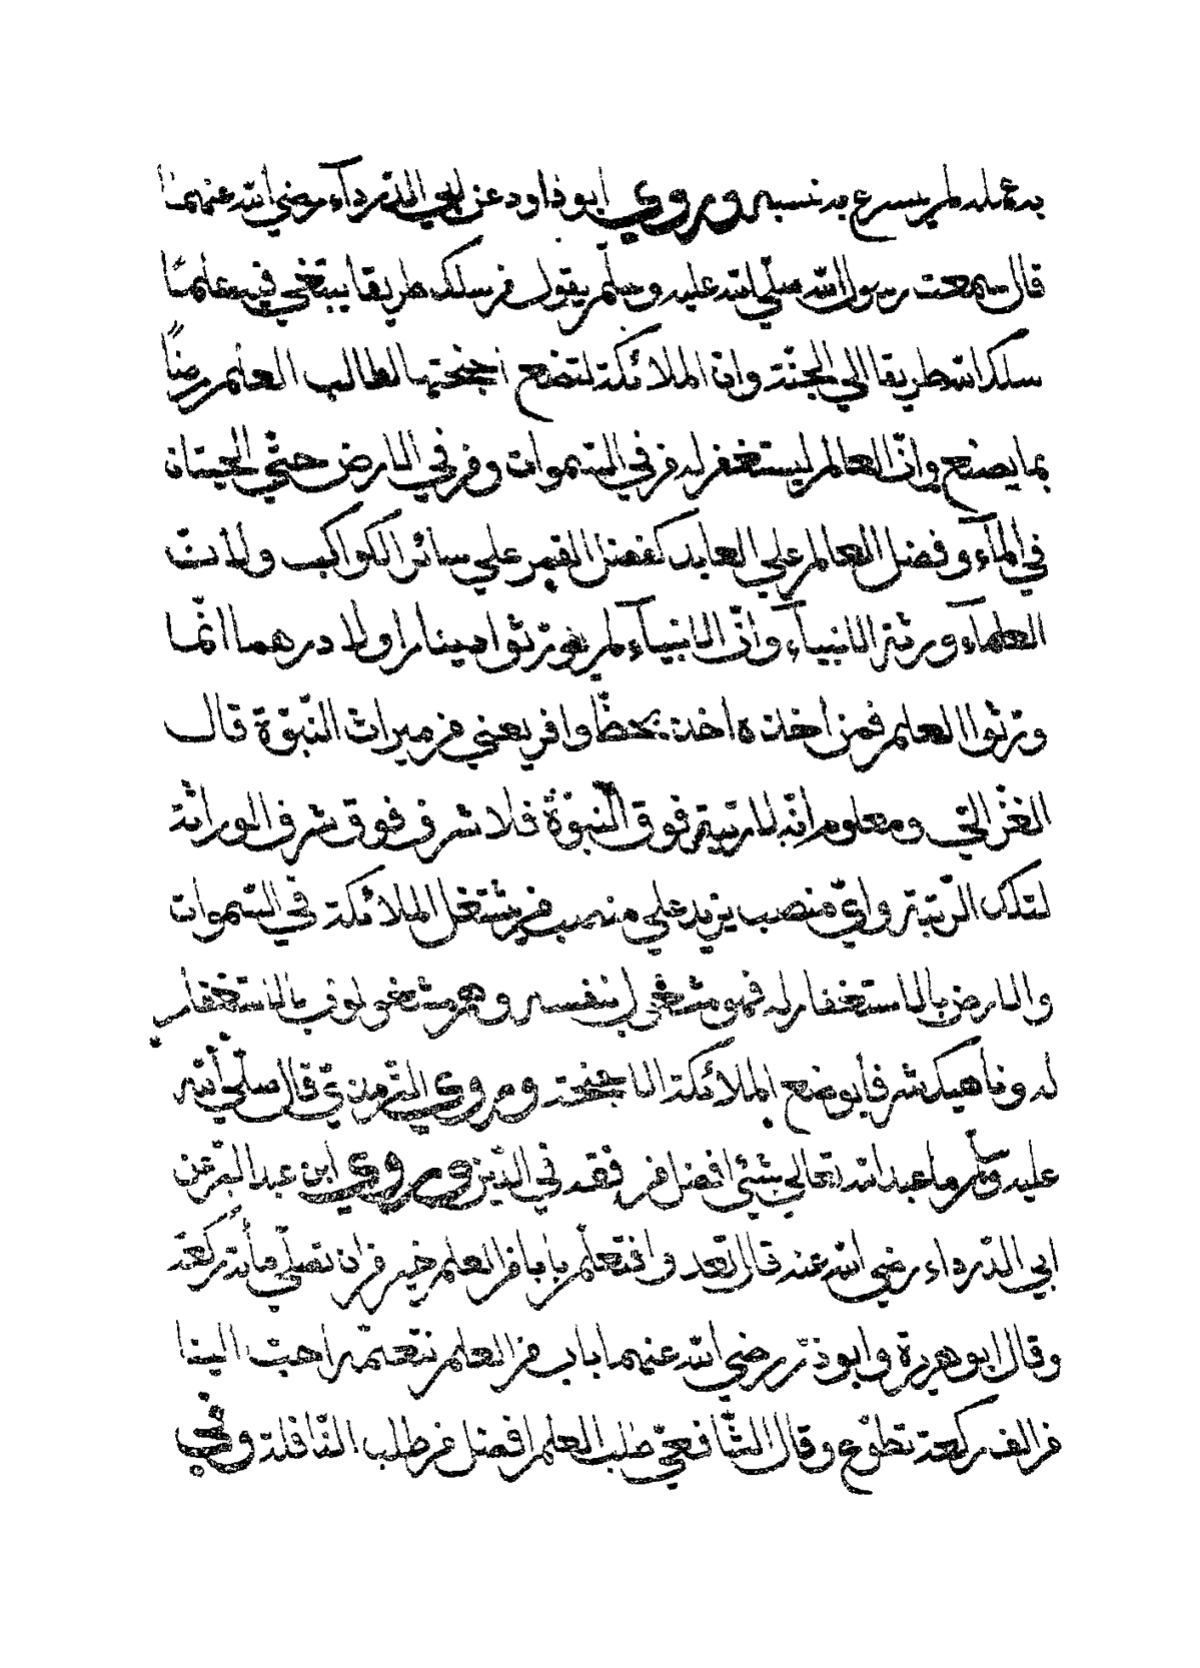 به عمله لم يسرع به نسبه وروي ابو داود عن ابي الدرداء رضي الله عنهما
قال سمعت رسول الله صلي الله عليه وسلم يقول من سلك طريقا يبتغي فيه علما
سلك الله طريقا الي الجنة وان الملائكة لتضع اجنحتها لطالب العلم رضاً
بما يصنع وانّ العالم ليستغفر له من في السموات ومن في الارض حتي الحيتان
في المآء وفضل العالم علي العابد كفضل القمر علي سائر الكواكب ولانّ
العلمآء ورثة الانبيآء وانّ الانبيآء لم يورّثوا دينارا ولا درهما انّما
ورّثوا العلم فمن اخذه اخذ بحظّ وافر يعني من ميراث النّبوّة قال
الغزّالي ومعلوم انّه لا رتبة فوق النّبوّة فلا شرف فوق شرف الوراثة
لتلك الرّتبة وايّ منصب يزيد علي منصب من يشتغل الملائكة في السّموات
والارض بالاستغفار له فهو مشغول بنفسه وهم مشغولون بالاستغفار
له وناهيك شرفا بوضع الملائكة الاجنحة وروي التّرمذيّ قال صلّي الله
عليه وسلم ما عبد الله تعالي بشئي افضل من فقه في الدّين وروي ابن عبد البرّ عن
ابي الدّرداء رضي الله عنه قال تعد وا فتعلّم بابا من العلم خير من ان تصلّي مأئة ركعة
وقال ابو هريرة وابو ذرّ رضي الله عنهما باب من العلم نتعلّمه احبّ الينا
من الف ركعة تطوّع وقال الشّافعيّ طلب العلم افضل من طلب النّافلة وفي